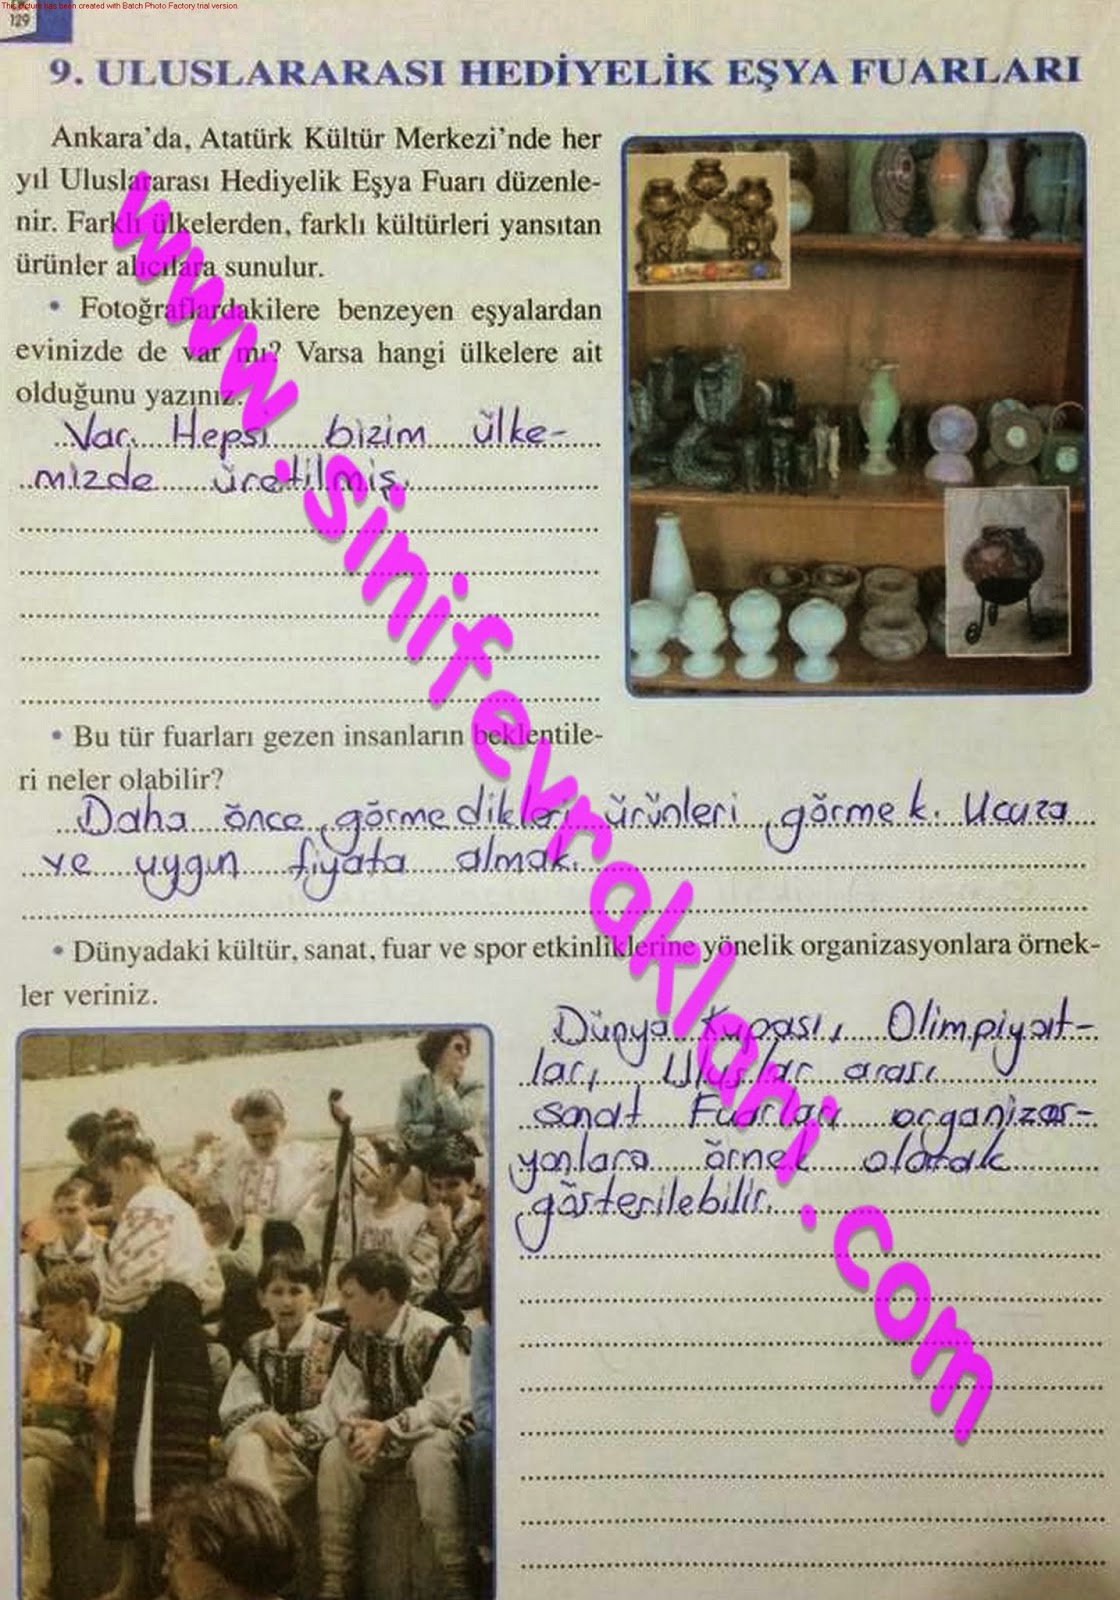 This picture has been created with Batch Photo Factory trial version.
129
9. ULUSLARARASI HEDİYELİK EŞYA FUARLARI
Ankara'da, Atatürk Kültür Merkezi'nde her
yıl Uluslararası Hediyelik Eşya Fuarı düzenle-
nir. Farklı ülkelerden, farklı kültürleri yansıtan
ürünler alıcılara sunulur.
• Fotoğraflardakilere benzeyen eşyalardan
evinizde de var mı? Varsa hangi ülkelere ait
olduğunu yazınız.
Var. Hepsi bizim ülke-
mizde üretilmiş.
• Bu tür fuarları gezen insanların beklentile-
ri neler olabilir?
Daha önce görmedikleri ürünleri görmek. Ucuza
ve uygun fiyata almak.
• Dünyadaki kültür, sanat, fuar ve spor etkinliklerine yönelik organizasyonlara örnek-
ler veriniz.
Dünya Kupası, Olimpiyat-
lar, Uluslar arası
sanat Fuarları organizas-
yonlara örnek olarak
gösterilebilir.
www.sinifevraklari.com